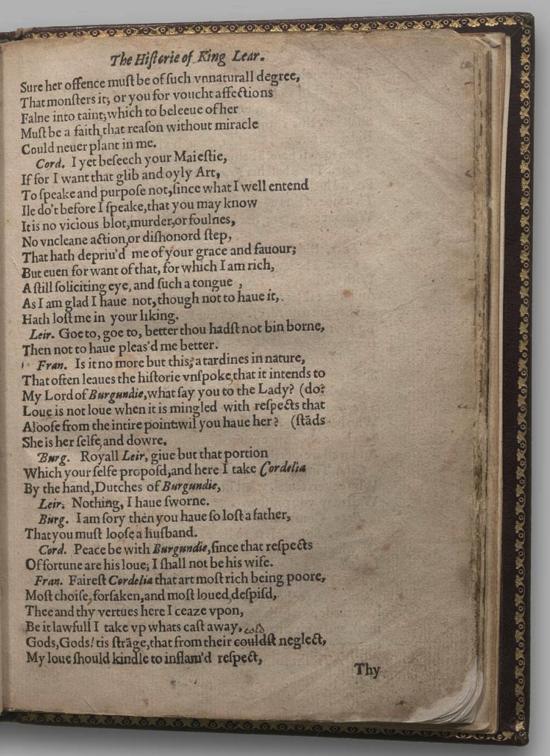 The Hiſtorie of King Lear.
Sure her offence muſt be of ſuch vnnaturall degree,
That monſters it, or you for voucht affections
Falne into taint, which to beleeue of her
Muſt be a faith that reaſon without miracle
Could neuer plant in me.
Cord. I yet beſeech your Maieſtie,
If for I want that glib and oyly Art,
To ſpeake and purpoſe not, ſince what I well entend
Ile do't before I ſpeake, that you may know
It is no vicious blot, murder, or foulnes,
No vncleane action, or diſhonord ſtep,
That hath depriu'd me of your grace and fauour;
But euen for want of that, for which I am rich,
A ſtill ſoliciting eye, and ſuch a tongue ,
As I am glad I haue not, though not to haue it,
Hath loſt me in your liking.
Leir. Goe to, goe to, better thou hadſt not bin borne,
Then not to haue pleas'd me better.
Fran. Is it no more but this, a tardines in nature,
That often leaues the hiſtorie vnſpoke, that it intends to
My Lord of Burgundie, what ſay you to the Lady? (do?
Loue is not loue when it is mingled with reſpects that
Alooſe from the intire point wil you haue her? (ſtãds
She is her ſelfe, and dowre.
Burg. Royall Leir, giue but that portion
Which your ſelfe propoſd, and here I take Cordelia
By the hand, Dutches of Burgundie,
Leir. Nothing, I haue ſworne.
Burg. I am ſory then you haue ſo loſt a father,
That you muſt looſe a huſband.
Cord. Peace be with Burgundie, ſince that reſpects
Of fortune are his loue, I ſhall not be his wife.
Fran. Faireſt Cordelia that art moſt rich being poore,
Moſt choiſe, forſaken, and moſt loued, deſpiſd,
Thee and thy vertues here I ceaze vpon,
Be it lawfull I take vp whats caſt away, cold
Gods, Gods! tis ſtrãge, that from their couldſt neglect,
My loue ſhould kindle to inflam'd reſpect,
Thy